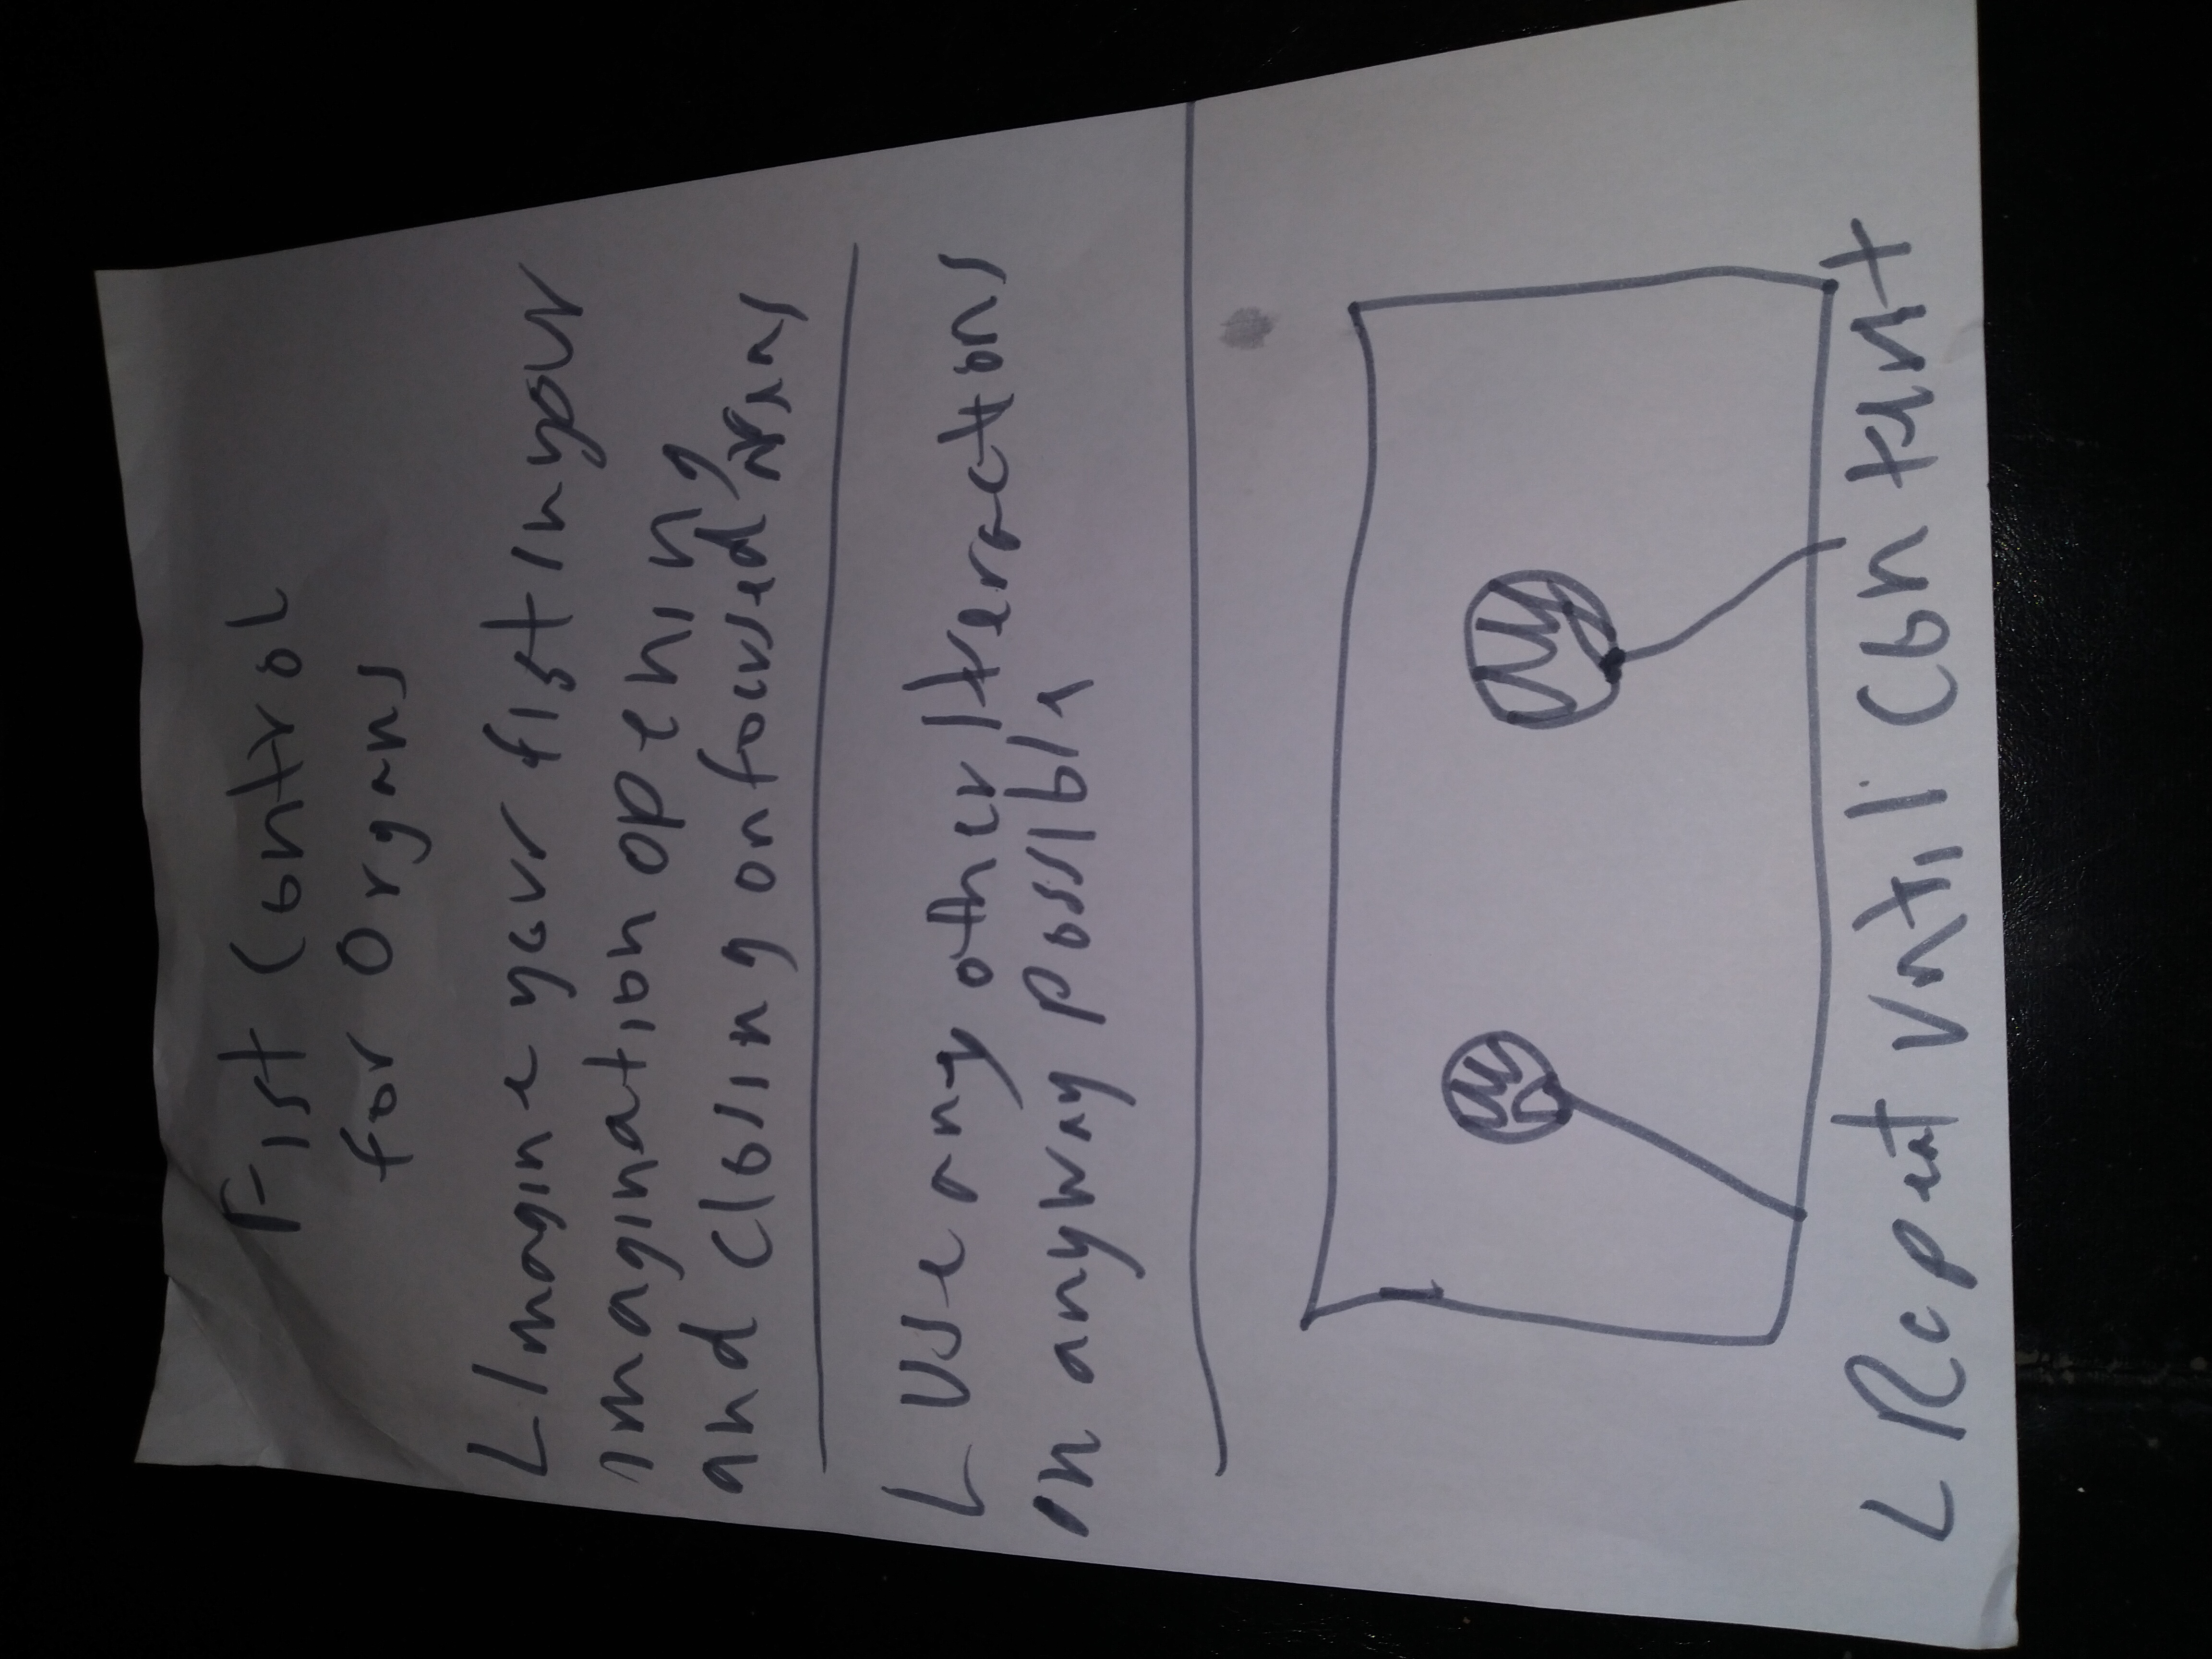 Fist Control
for Organs
L Imagine your fist in your
imagination opening
and closing on focused organs
L Use any other Iteractons
in anyway possibly
L Repeat Until Content